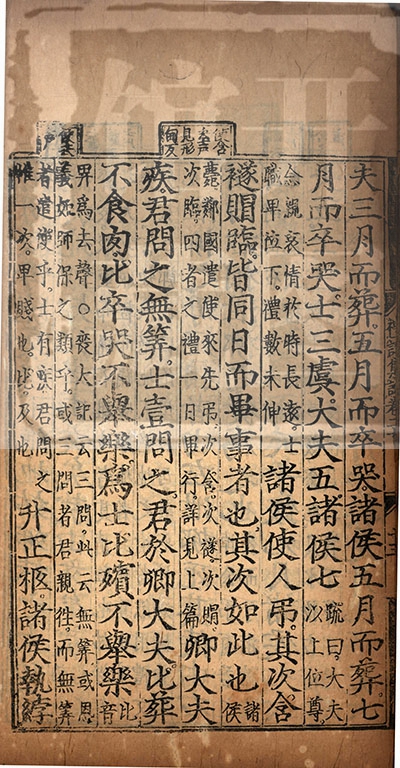 夫三月而葬。五月而卒哭。諸侯五月而葬。七
月而卒哭。士三虞。大夫五。諸侯七
疏曰。大夫
以上位尊。
念親哀情於時長遠。士
職卑位下。禮數未伸
諸侯使人弔。其次含
襚賵臨。皆同日而畢事者也。其次如此也
諸
侯
薨。鄰國遣使來先弔。次含。次襚。次賵
次臨。四者之禮一日畢行。詳見上篇
卿大夫
疾。君問之無筭。士壹問之。君於卿大夫。比葬
不食肉。比卒哭不舉樂。爲士比殯。不舉樂
比
音
界。爲去聲○喪大記云三問。此云無筭。或恩
義如師保之類乎。或三問者君親往。而無筭
者遣使乎。士有疾。君問之
惟一次。卑賤也。比。及也
升正柩。諸侯執綍
見形
甸反